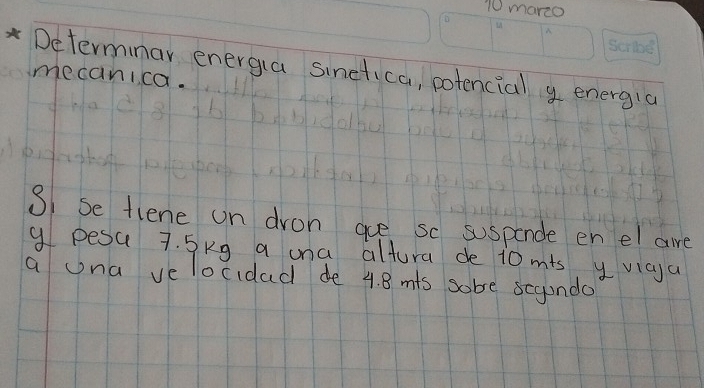 10 marzo
Scribe
* Determinar energia sinetica, potencial y energia
mecanica.
Si se tiene un dron que se suspende en el aire
y pesa 7.5kg a una altura de 10 mts y viaja
a una velocidad de 4.8 mts sobre segundo